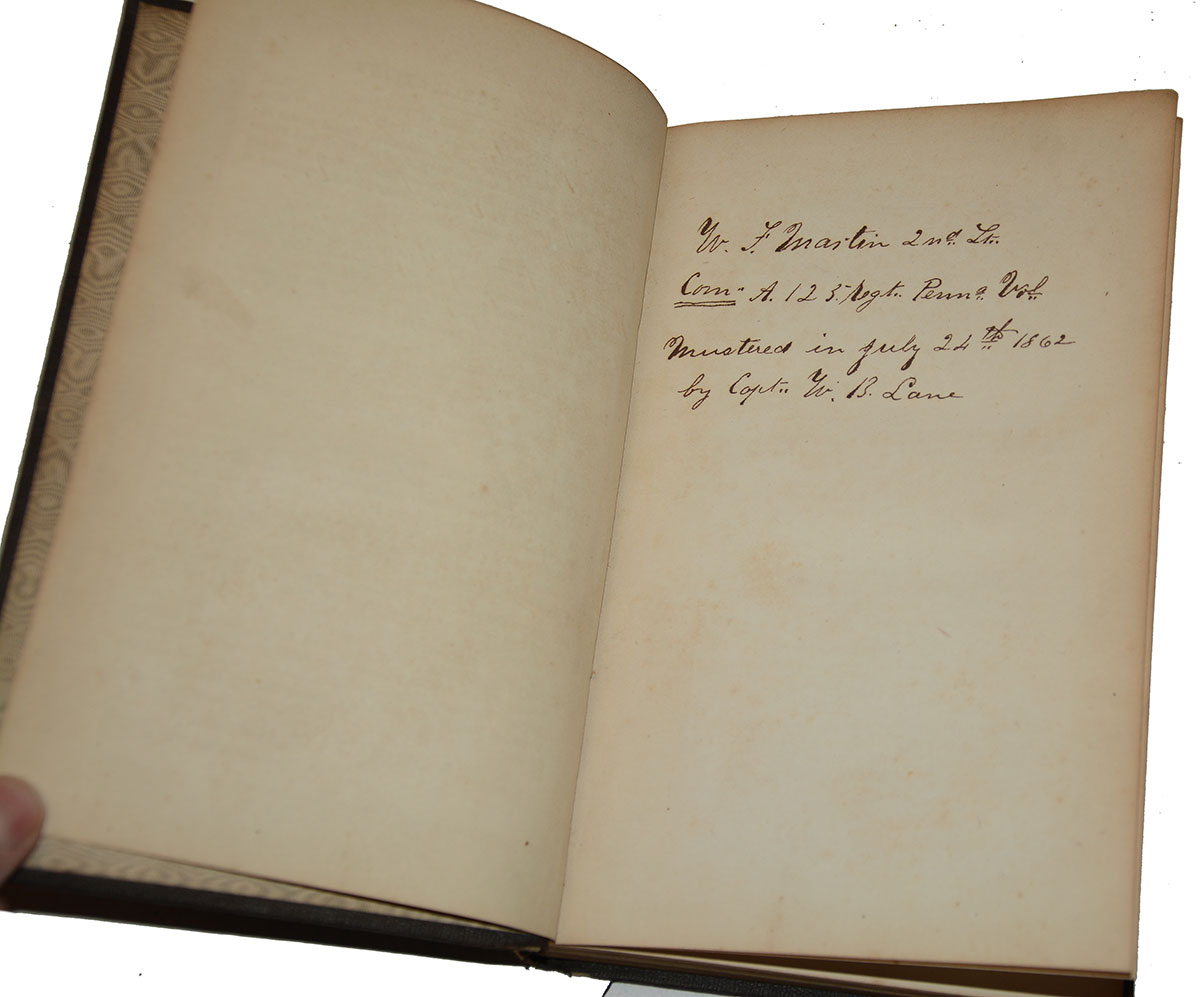 W. F. Martin 2nd. Lt.
Com" A. 125. Regt. Penna. Vol
Mustered in July 24th 1862
by Capt. W. B. Lane